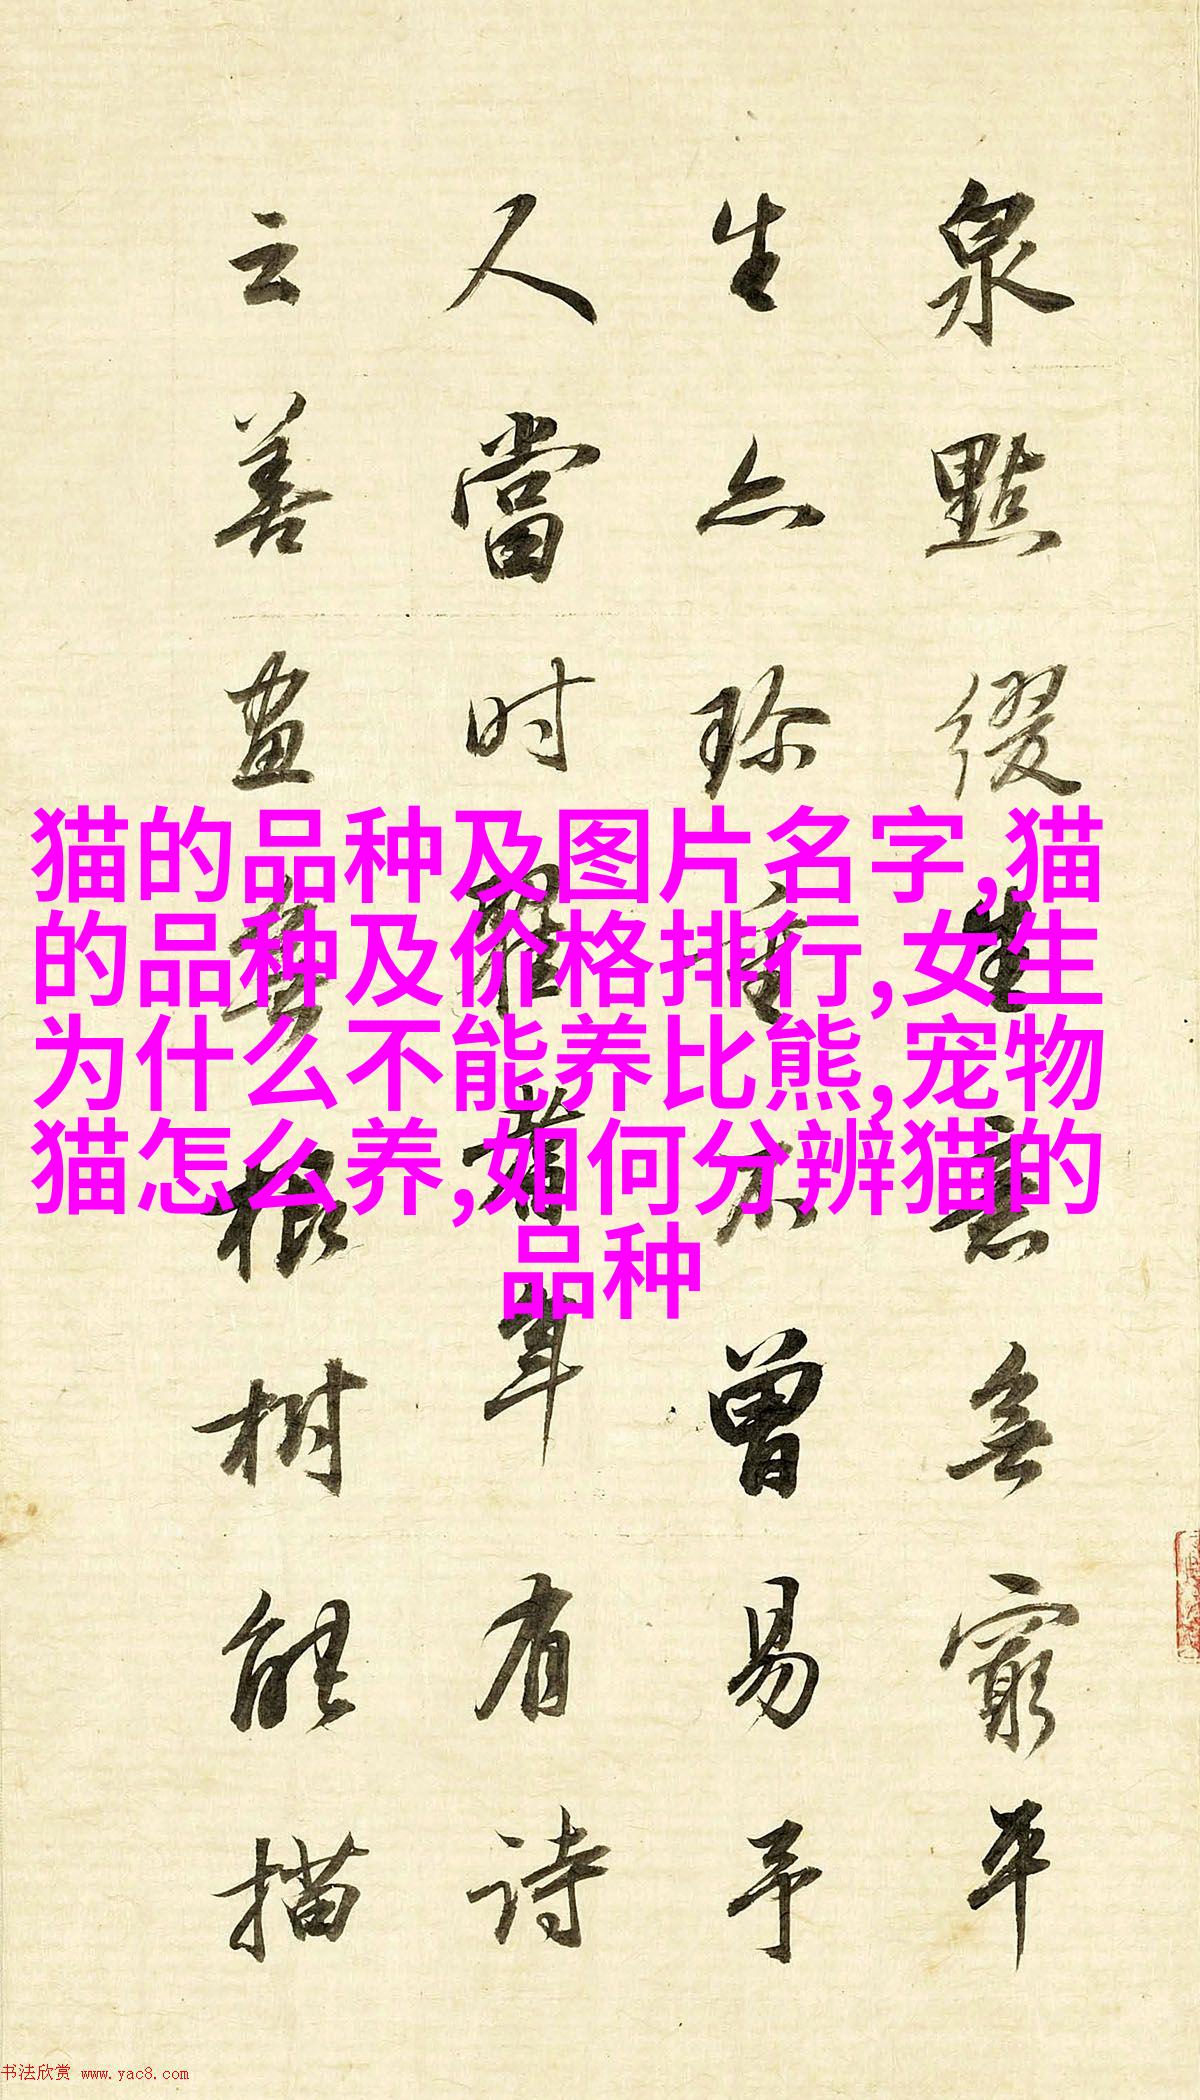 泉點綴生意無窮平
生亦珎重不曾易予
人當时翟耆年有诗
云善畫無根树能描
猫的品种及图片名字,猫
的品种及价格排行,女生
为什么不能养比熊,宠物
猫怎么养,如何分辨猫的
品种
书法欣赏 www.yac8.com